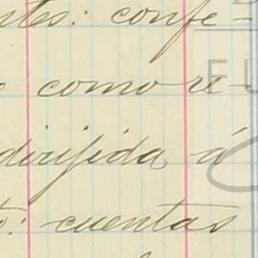 ntes: confe-
como re-
dirijida á
cuentas